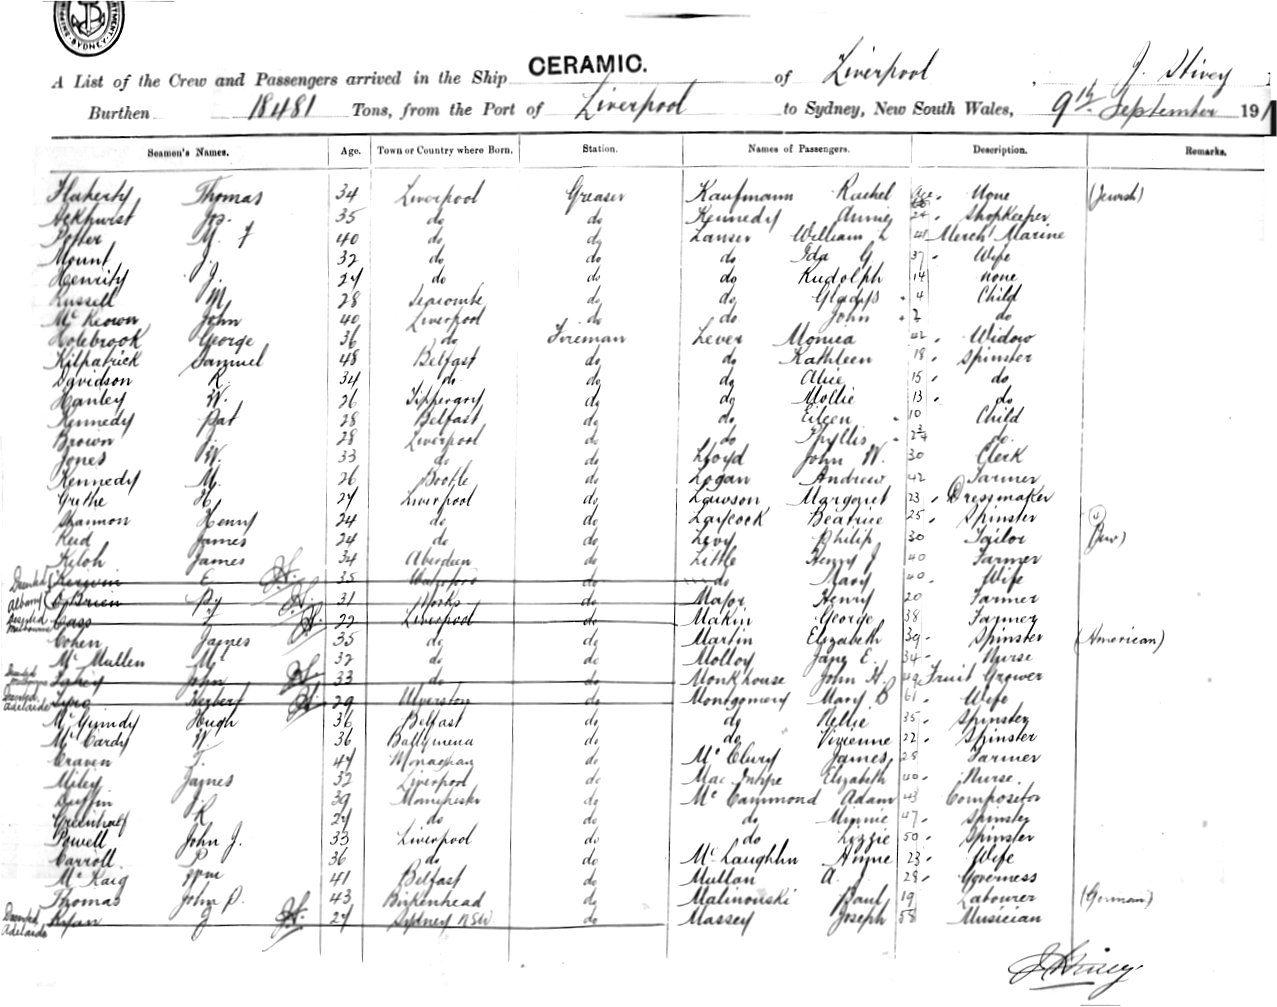 SYDNEY
CERAMIC.
A List of the Crew and Passengers arrived in the Ship of Liverpool, J. Stivey
Burthen 18481 Tons, from the Port of Liverpool to Sydney, New South Wales, 9th September 191
Seamen's Names. Age. Town or Country where Born. Station. Names of Passengers. Description. Remarks.
Flaherty Thomas 34 Liverpool Greaser Kaufmann Rachel None (Jewish)
Ackhurst Jos. 35 do do Kennedy Annie 24 Shopkeeper
Potter 40 do do Lanser William L 41 Merch' Marine
Mount J. 32 do do do Ida G 37 Wife
J. 27 do do do Rudolph 14 none
Russell M 28 Seacombe do do Gladys 4 Child
McKeown John 40 Liverpool do do John 2 do
Holebrook George 36 do Fireman Lever Monica 42 Widow
Kilpatrick Samuel 48 Belfast do do Kathleen 18 Spinster
Davidson R. 34 do do do Alice 15 do
Hanley W. 26 Tipperary do do Mollie 13 do
Kennedy Pat 28 Belfast do do Eileen 10 Child
Brown J. 28 Liverpool do do Phyllis do
Jones W. 33 do do Lloyd John W. 30 Clerk
Kennedy M. 26 Bootle do Logan Andrew 42 Farmer
Grethe H. 27 Liverpool do Lawson Margaret 23 Dressmaker
Shannon Henry 24 do do Laycock Beatrice 25 Spinster
Reid James 24 do do Levy Philip 30 Tailor (Jew)
Keloh James 34 Aberdeen do Little Henry J 40 Farmer
Deserted Kerwin E 35 Waterford do do Mary 40 Wife
Albany O'Brien Py 31 do Major Henry 20 Farmer
Deserted Melbourne Cass J 22 Liverpool do Makin George 38 Farmer
Cohen James 35 do do Martin Elizabeth 39 Spinster (American)
McMullen M 32 do do Molloy Jane E. 34 Nurse
Deserted Melbourne John 33 do do Monkhouse John H. 49 Fruit Grower
Deserted Adelaide Herbert 29 Ulverston do Montgomery Mary B 61 Wife
McGrundy Hugh 36 Belfast do do Nellie 35 Spinster
McCardy W. 36 Ballymena do do Vivienne 22 Spinster
Craven T. 47 Monaghan do McClury James 28 Farmer
Miley James 32 Liverpool do MacIntyre Elizabeth 40 Nurse
Duffin J. 39 Manchester do McCammond Adam 43 Compositor
Greenhalf R 27 do do do Minnie 47 Spinster
Powell John J. 33 Liverpool do do Lizzie 50 Spinster
Carroll P 36 do do McLaughlin Annie 23 Wife
McKaig Wm 41 Belfast do Mullan A. J. 28 Governess
Thomas John P. 43 Birkenhead do Malinowski Paul 19 Labourer (German)
Deserted Adelaide Ryan J 27 Sydney NSW do Massey Joseph 58 Musician
J Stivey